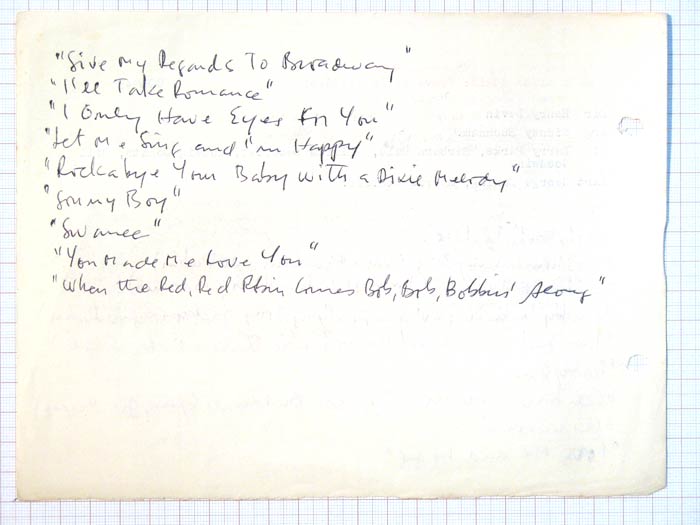 "Give My Regards To Broadway"
"I'll Take Romance"
"I Only Have Eyes For You"
"Let Me Sing and I'm Happy"
"Rockabye Your Baby with a Dixie Melody"
"Sonny Boy"
"Swanee"
"You Made Me Love You"
"When the Red, Red Robin Comes Bob, Bob, Bobbin' Along"